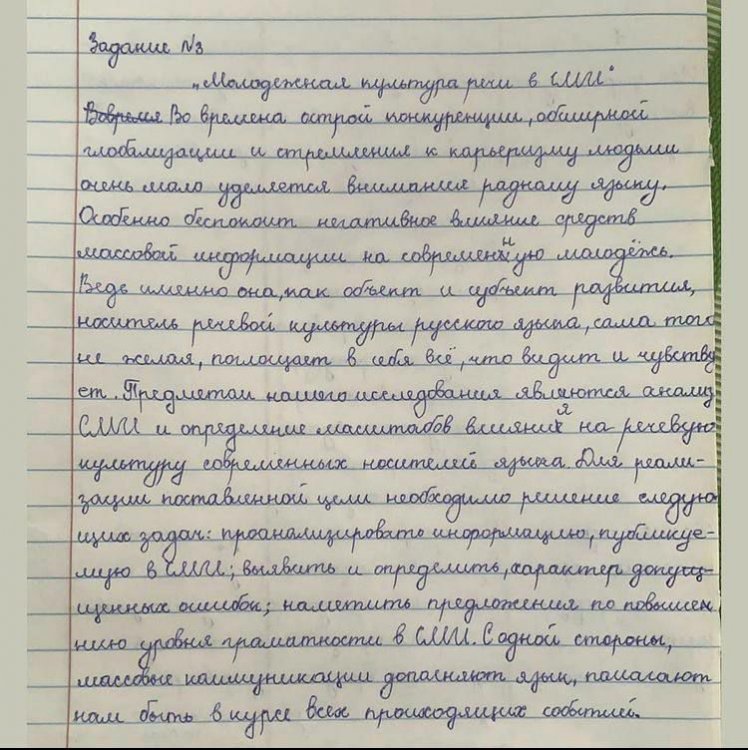 Задание №3
„Молодежная культура речи в СМИ"
Вовремя Во времена острой конкуренции, обширной
глобализации и стремления к карьеризму людьми
очень мало уделяется внимания радному языку.
Особенно беспокоит негативное влияние средств
массовой информации на современную молодёжь.
Ведь именно она, как объект и субъект развития,
носитель речевой культуры русского языка, сама того
не желая, поглощает в себя всё, что видит и чувству
ет. Предметам нашего исследования являются анализ
СМИ и определение масштабов влияния на речевую
культуру современных носителей языка. Для реали-
зации поставленной цели необходимо решение следую
щих задач: проанализировать информацию, публикуе-
мую в СМИ; выявить и определить, характер допущ-
щенных ошибок; наметить предложения по повышен
нию уровня граматности в СМИ. С одной стороны,
массовые каммуникации дополняют язык, памагают
нам быть в курсе всех происходящих событий.